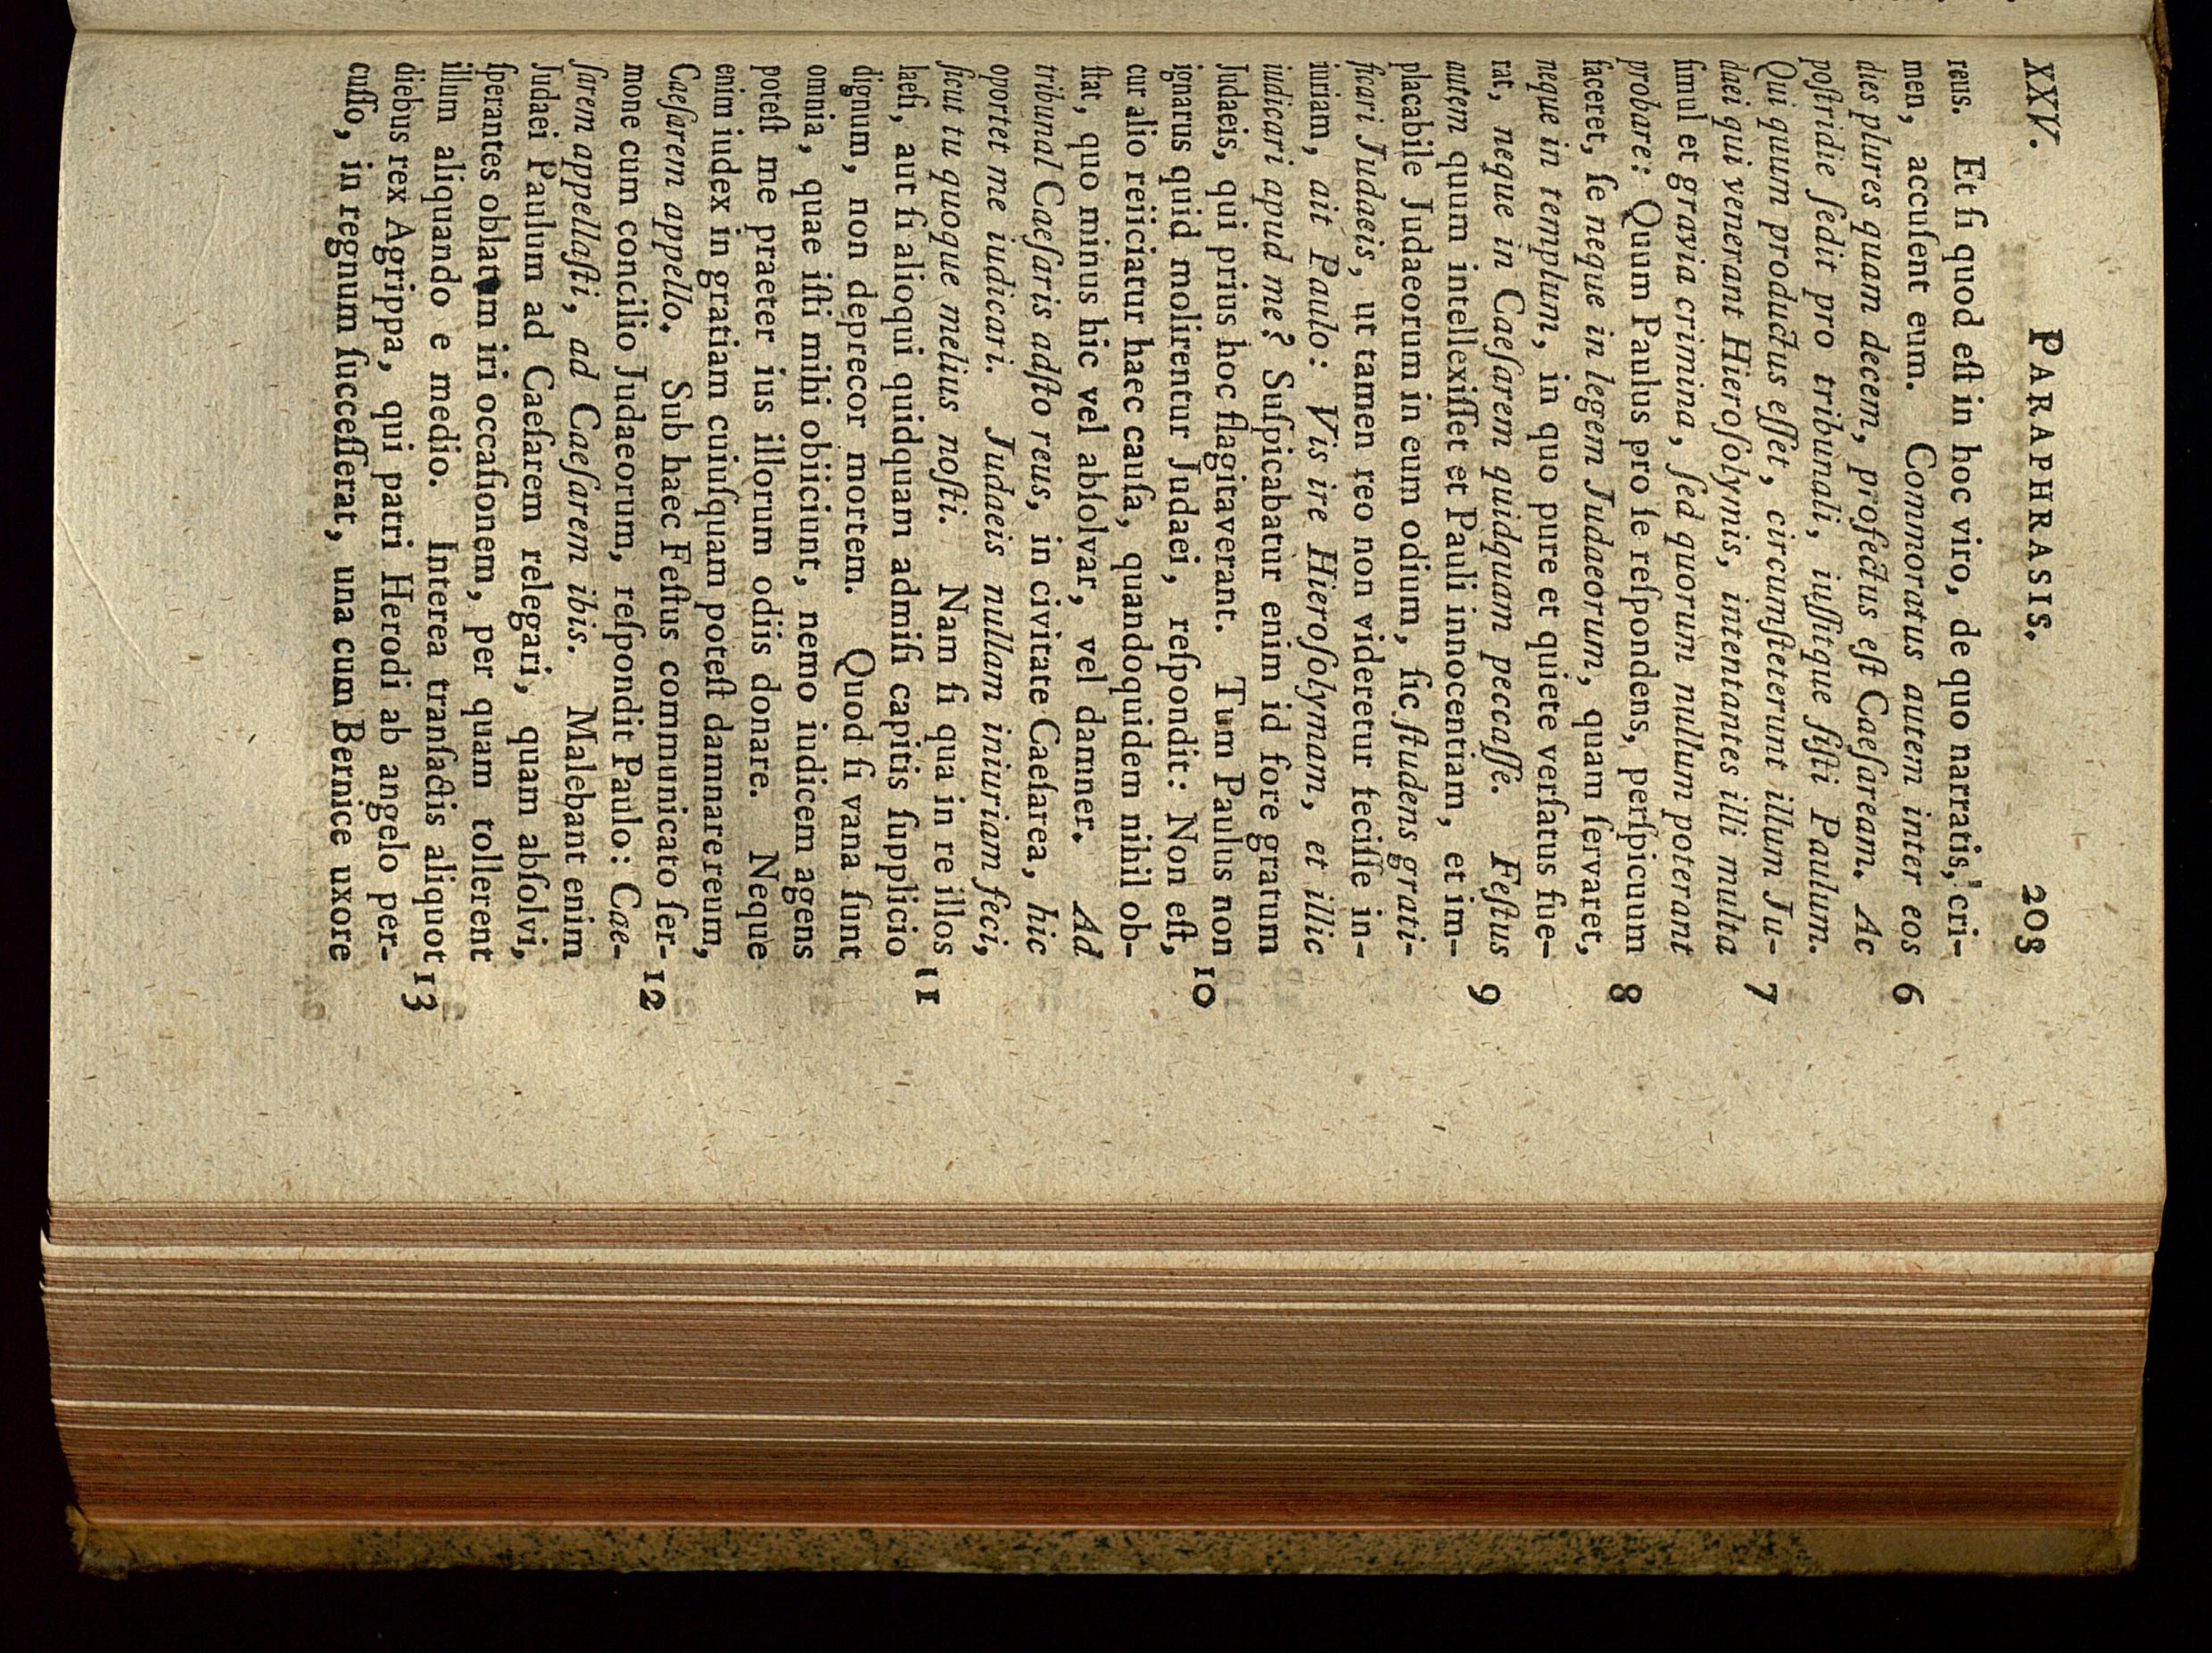 XXV. PARAPHRASIS. 203
reus. Et ſi quod eſt in hoc viro, de quo narratis, cri-
men, accuſent eum. Commoratus autem inter eos 6
dies plures quam decem, profectus eſt Caeſaream. Ac
poſtridie ſedit pro tribunali, iuſſitque ſiſti Paulum.
Qui quum productus eſſet, circumſteterunt illum Ju- 7
daei qui venerant Hieroſolymis, intentantes illi multa
ſimul et gravia crimina, ſed quorum nullum poterant
probare: Quum Paulus pro ſe reſpondens, perſpicuum 8
faceret, ſe neque in legem Judaeorum, quam ſervaret,
neque in templum, in quo pure et quiete verſatus fue-
rat, neque in Caeſarem quidquam peccaſſe. Feſtus 9
autem quum intellexiſſet et Pauli innocentiam, et im-
placabile Judaeorum in eum odium, ſic ſtudens grati-
ficari Judaeis, ut tamen reo non videretur feciſſe in-
iuriam, ait Paulo: Vis ire Hieroſolymam, et illic
iudicari apud me? Suſpicabatur enim id fore gratum
Judaeis, qui prius hoc flagitaverant. Tum Paulus non 10
ignarus quid molirentur Judaei, reſpondit: Non eſt,
cur alio reiiciatur haec cauſa, quandoquidem nihil ob-
ſtat, quo minus hic vel abſolvar, vel damner. Ad
tribunal Caeſaris adſto reus, in civitate Caeſarea, hic
oportet me iudicari. Judaeis nullam iniuriam feci,
ſicut tu quoque melius noſti. Nam ſi qua in re illos 11
laeſi, aut ſi alioqui quidquam admiſi capitis ſupplicio
dignum, non deprecor mortem. Quod ſi vana ſunt
omnia, quae iſti mihi obiiciunt, nemo iudicem agens
poteſt me praeter ius illorum odiis donare. Neque
enim iudex in gratiam cuiuſquam poteſt damnare reum,
Caeſarem appello. Sub haec Feſtus communicato ſer- 12
mone cum concilio Judaeorum, reſpondit Paulo: Cae-
ſarem appellaſti, ad Caeſarem ibis. Malebant enim
Judaei Paulum ad Caeſarem relegari, quam abſolvi,
ſperantes oblatam iri occaſionem, per quam tollerent
illum aliquando e medio. Interea tranſactis aliquot 13
diebus rex Agrippa, qui patri Herodi ab angelo per-
cuſſo, in regnum ſucceſſerat, una cum Bernice uxore